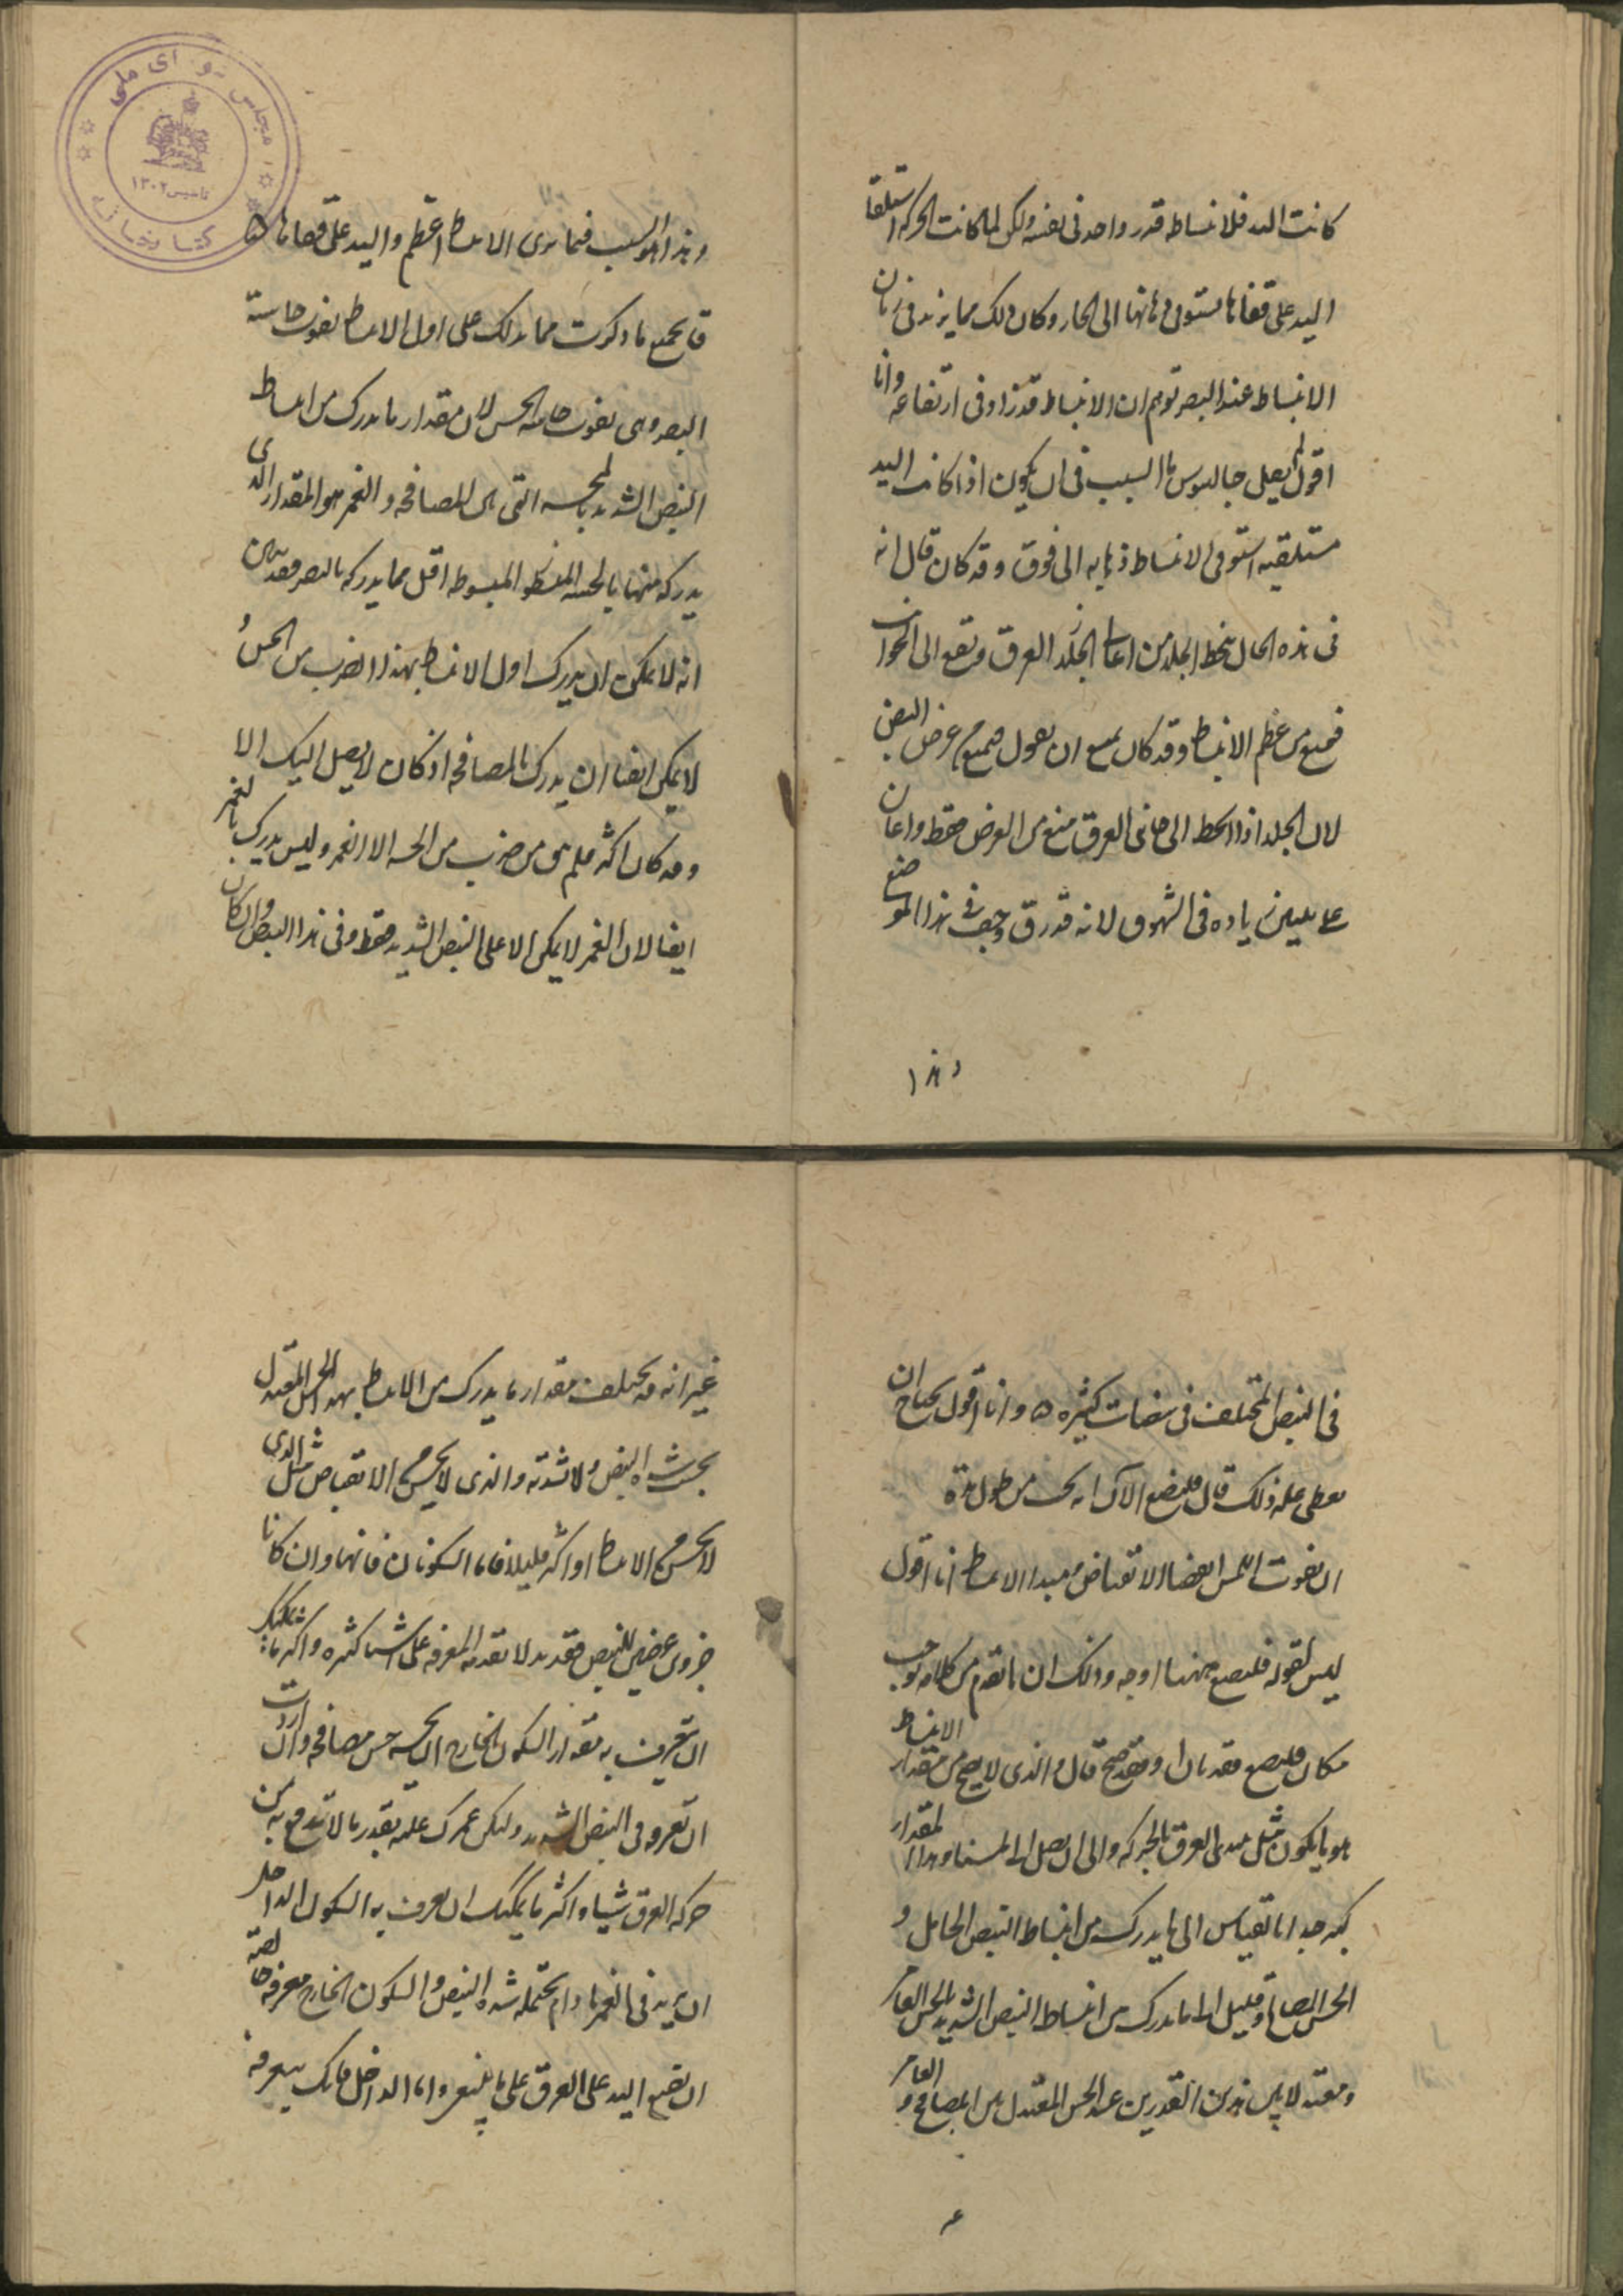 كانت اليد فللانبساط قدر واحد فى نفسه ولكن لما كانت الحركة استلقا
اليد على قفاها مستوفى ذهابها الى الخارج وكان ذلك مما يزيد فى زمان
الانبساط عند البصر توهم ان الانبساط قد زاد فى ارتفاعه وانا
اقول لم يعط جالينوس ما السبب فى ان يكون اذا كانت اليد
مستلقيه استوفى الانبساط ذهابه الى فوق وقد كان قال انه
فى هذه الحال ينحط الجلد من اعالى العرق ويقع الى الجوانب
فيمنع من عظم الانبساط وقد كان ينبغى ان يقول فيمنع من عرض النبض
لان الجلد اذا انحط الى جانبى العرق منع من العرض فقط واعان
على تبيين زيادة فى الشهوق لانه قد رق وجف فى هذا الموضع
وهذا
وهذا هو السبب فيما يرى الانبساط اعظم واليد على قفاها ه
قال جميع ما ذكرت مما يدلك على ان اول الانبساط يفوت حاسة
البصر وهى تفوت حاسة الحس لان مقدار ما يدرك من انبساط
النبض الشديد بالمجسه التى بين المصافحه والغمر هو المقدار الذى
يدركه منها بالمجسه المبسوطه اقل مما يدركه بالبصر فقد تبين
انه لا يمكن ان يدرك اول الانبساط بهذا الضرب من الحس و
لا يمكن ايضا ان يدرك بالمصافحه اذ كان لا يصل اليك الا
وقد كان اكثره فلم يبق من ضرب من الحسه الا الغمر وليس يدرك بالغمر
ايضا لان الغمر لا يمكن الا على النبض الشديد فقط وفى هذا النبض وان كان
فى النبض المختلف فى نبضات كثيره ه وانا اقول يحتاج ان
يعطى عله ذلك قال فليضع الآن انه يجب من طول مدة
ان يفوت اللمس ايضا الانقباض مبدا الانبساط انا اقول
ليس لقوله فليضع ههنا وجه وذلك ان ما تقدم من كلامه يوجب
مكان فليضع فقد بان او فقد صح قال والذى لا يصح من مقدار الانبساط
هو ما يكون مثل مبدى العرق بالحركه والى ان يصل الى لمسنا وهذا المقدار
كبير جدا بالقياس الى ما يدرك من انبساط النبض الخامل و
الحس المصافح وقليل الى ما يدرك من انبساط النبض الشديد بالحس الغامر
ومعتدلا بين هذين القدرين عند الحس المعتدل بين المصافح والغامر
غير
غير انه قد يختلف مقدار ما يدرك من الانبساط بهذا الحس المعتدل
بحسب شده النبض ولا شدته والذى لا يحس من الانقباض مثل الذى
لا يحس من الانبساط او اكثر قليلا فاما السكونان فانهما وان كانا
جزوين عرضيين للنبض فقد يدلا بقدمه المعرفه على اشيا كثيره واكثر ما يمكنك
ان تتعرف به مقدار السكون الخارج ان تجسه جس مصافحه وان اردت
ان تعرفه فى النبض الشديد وليكن غمزك عليه بقدر ما لا تدفع به من
حركه العرق شيا واكثر ما يمكنك ان تعرف به السكون الداخل
ان يزيد فى الغمر ما دام يحتمله شده النبض والسكون الخارج معرفه خالصة
ان تضع اليد على العرق على ما ينبغى واما الداخل فانك ستعرفه